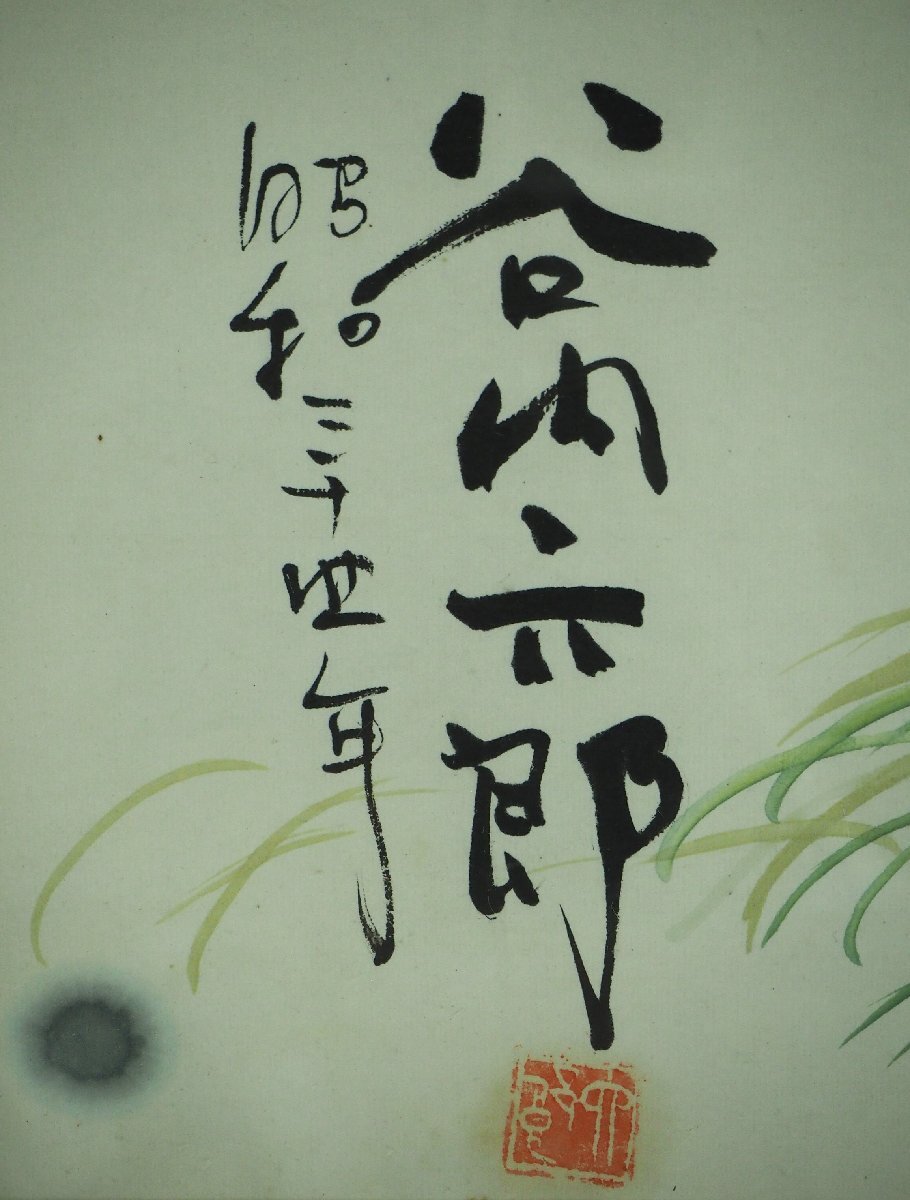 谷内六郎
昭和三十四年